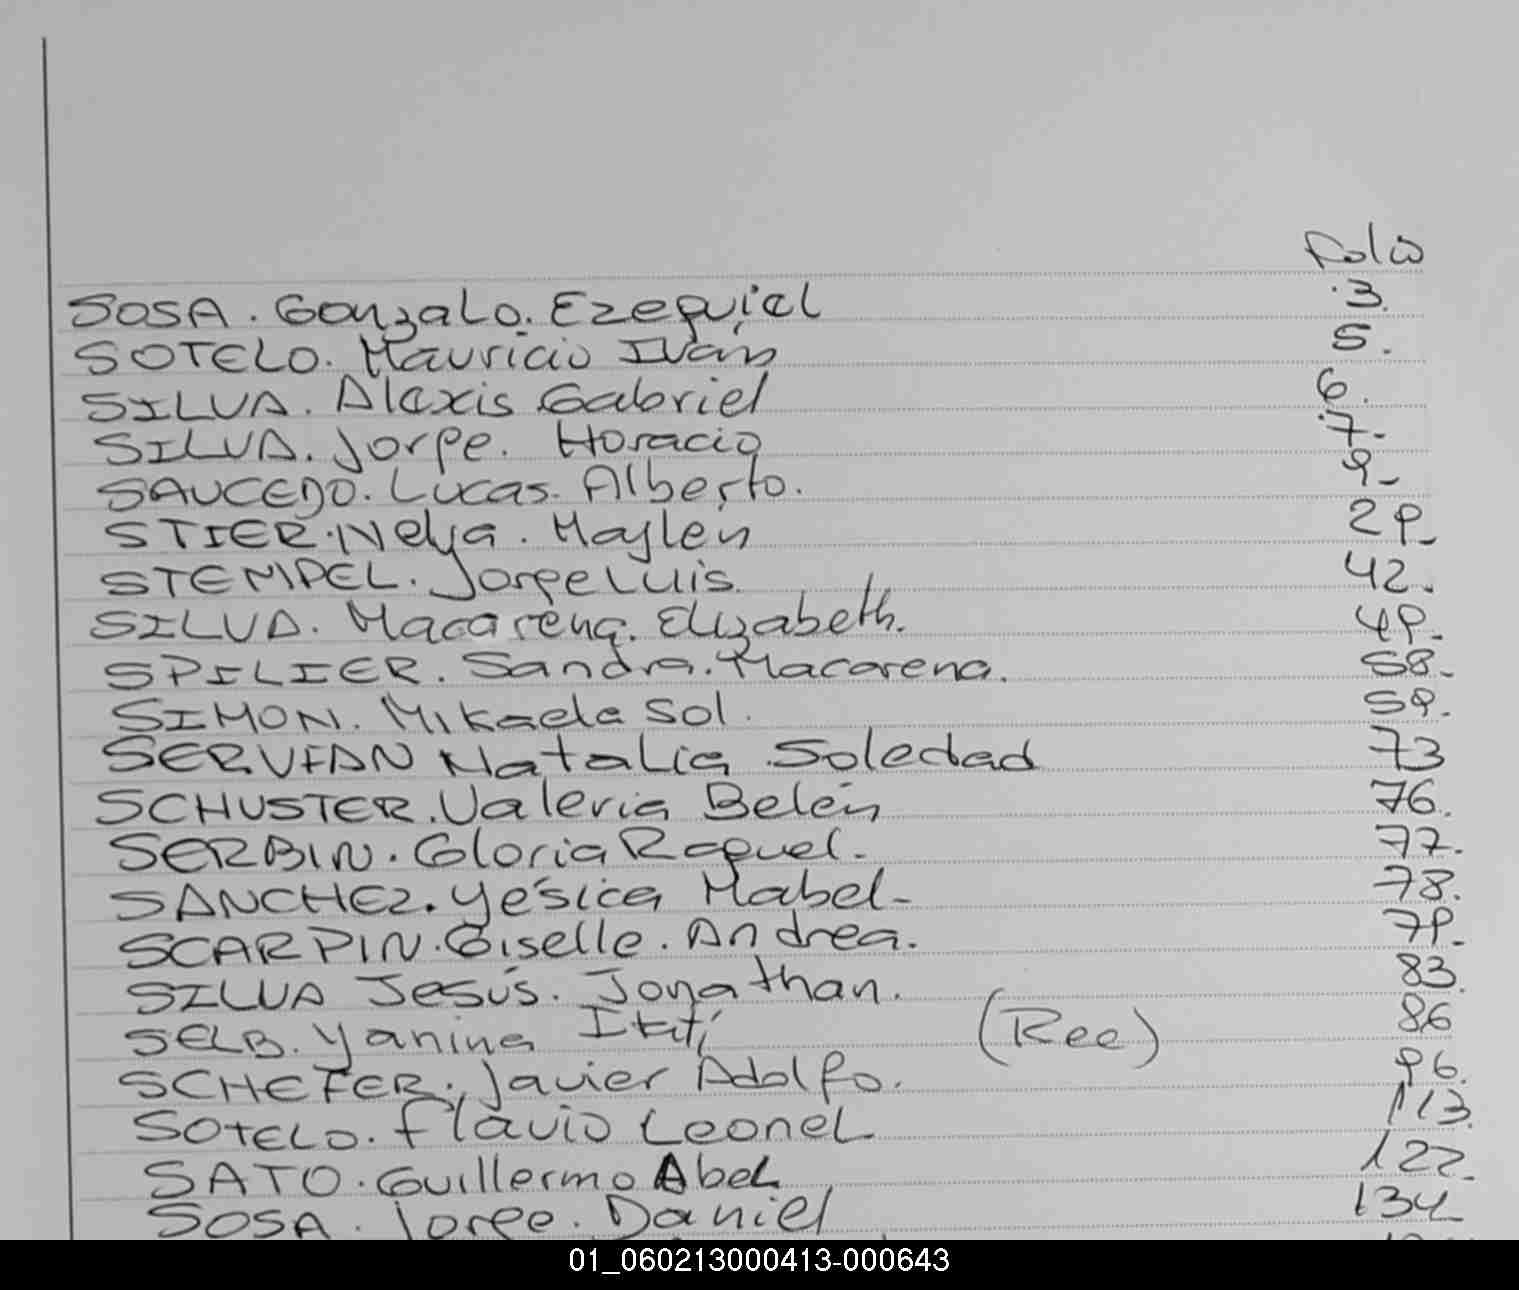 Folio
SOSA. Gonzalo. Ezequiel 3.
SOTELO. Mauricio Iván 5.
SILVA. Alexis Gabriel 6.
SILVA. Jorge. Horacio 7-
SAUCEDO. Lucas. Alberto. 9-
STIER. Nelya. Maylen 29-
STEMPEL. Jorge Luis. 42.
SILVA. Macarena. Elizabeth. 49-
SPILIER. Sandra. Macarena. 58-
SIMON. Mikaela Sol. 59.
SERVIAN Natalia Soledad 73
SCHUSTER. Valeria Belén 76.
SERBIN. Gloria Raquel. 77.
SANCHEZ. Yésica Mabel- 78.
SCARPIN. Giselle. Andrea. 79-
SILVA Jesús. Jonathan. 83.
SELB. Yanina Itatí (Ree) 86
SCHEFER. Javier Adolfo. 96.
SOTELO. Flavio Leonel 113.
SATO. Guillermo Abel 122.
SOSA. Jorge. Daniel 134
01_060213000413-000643